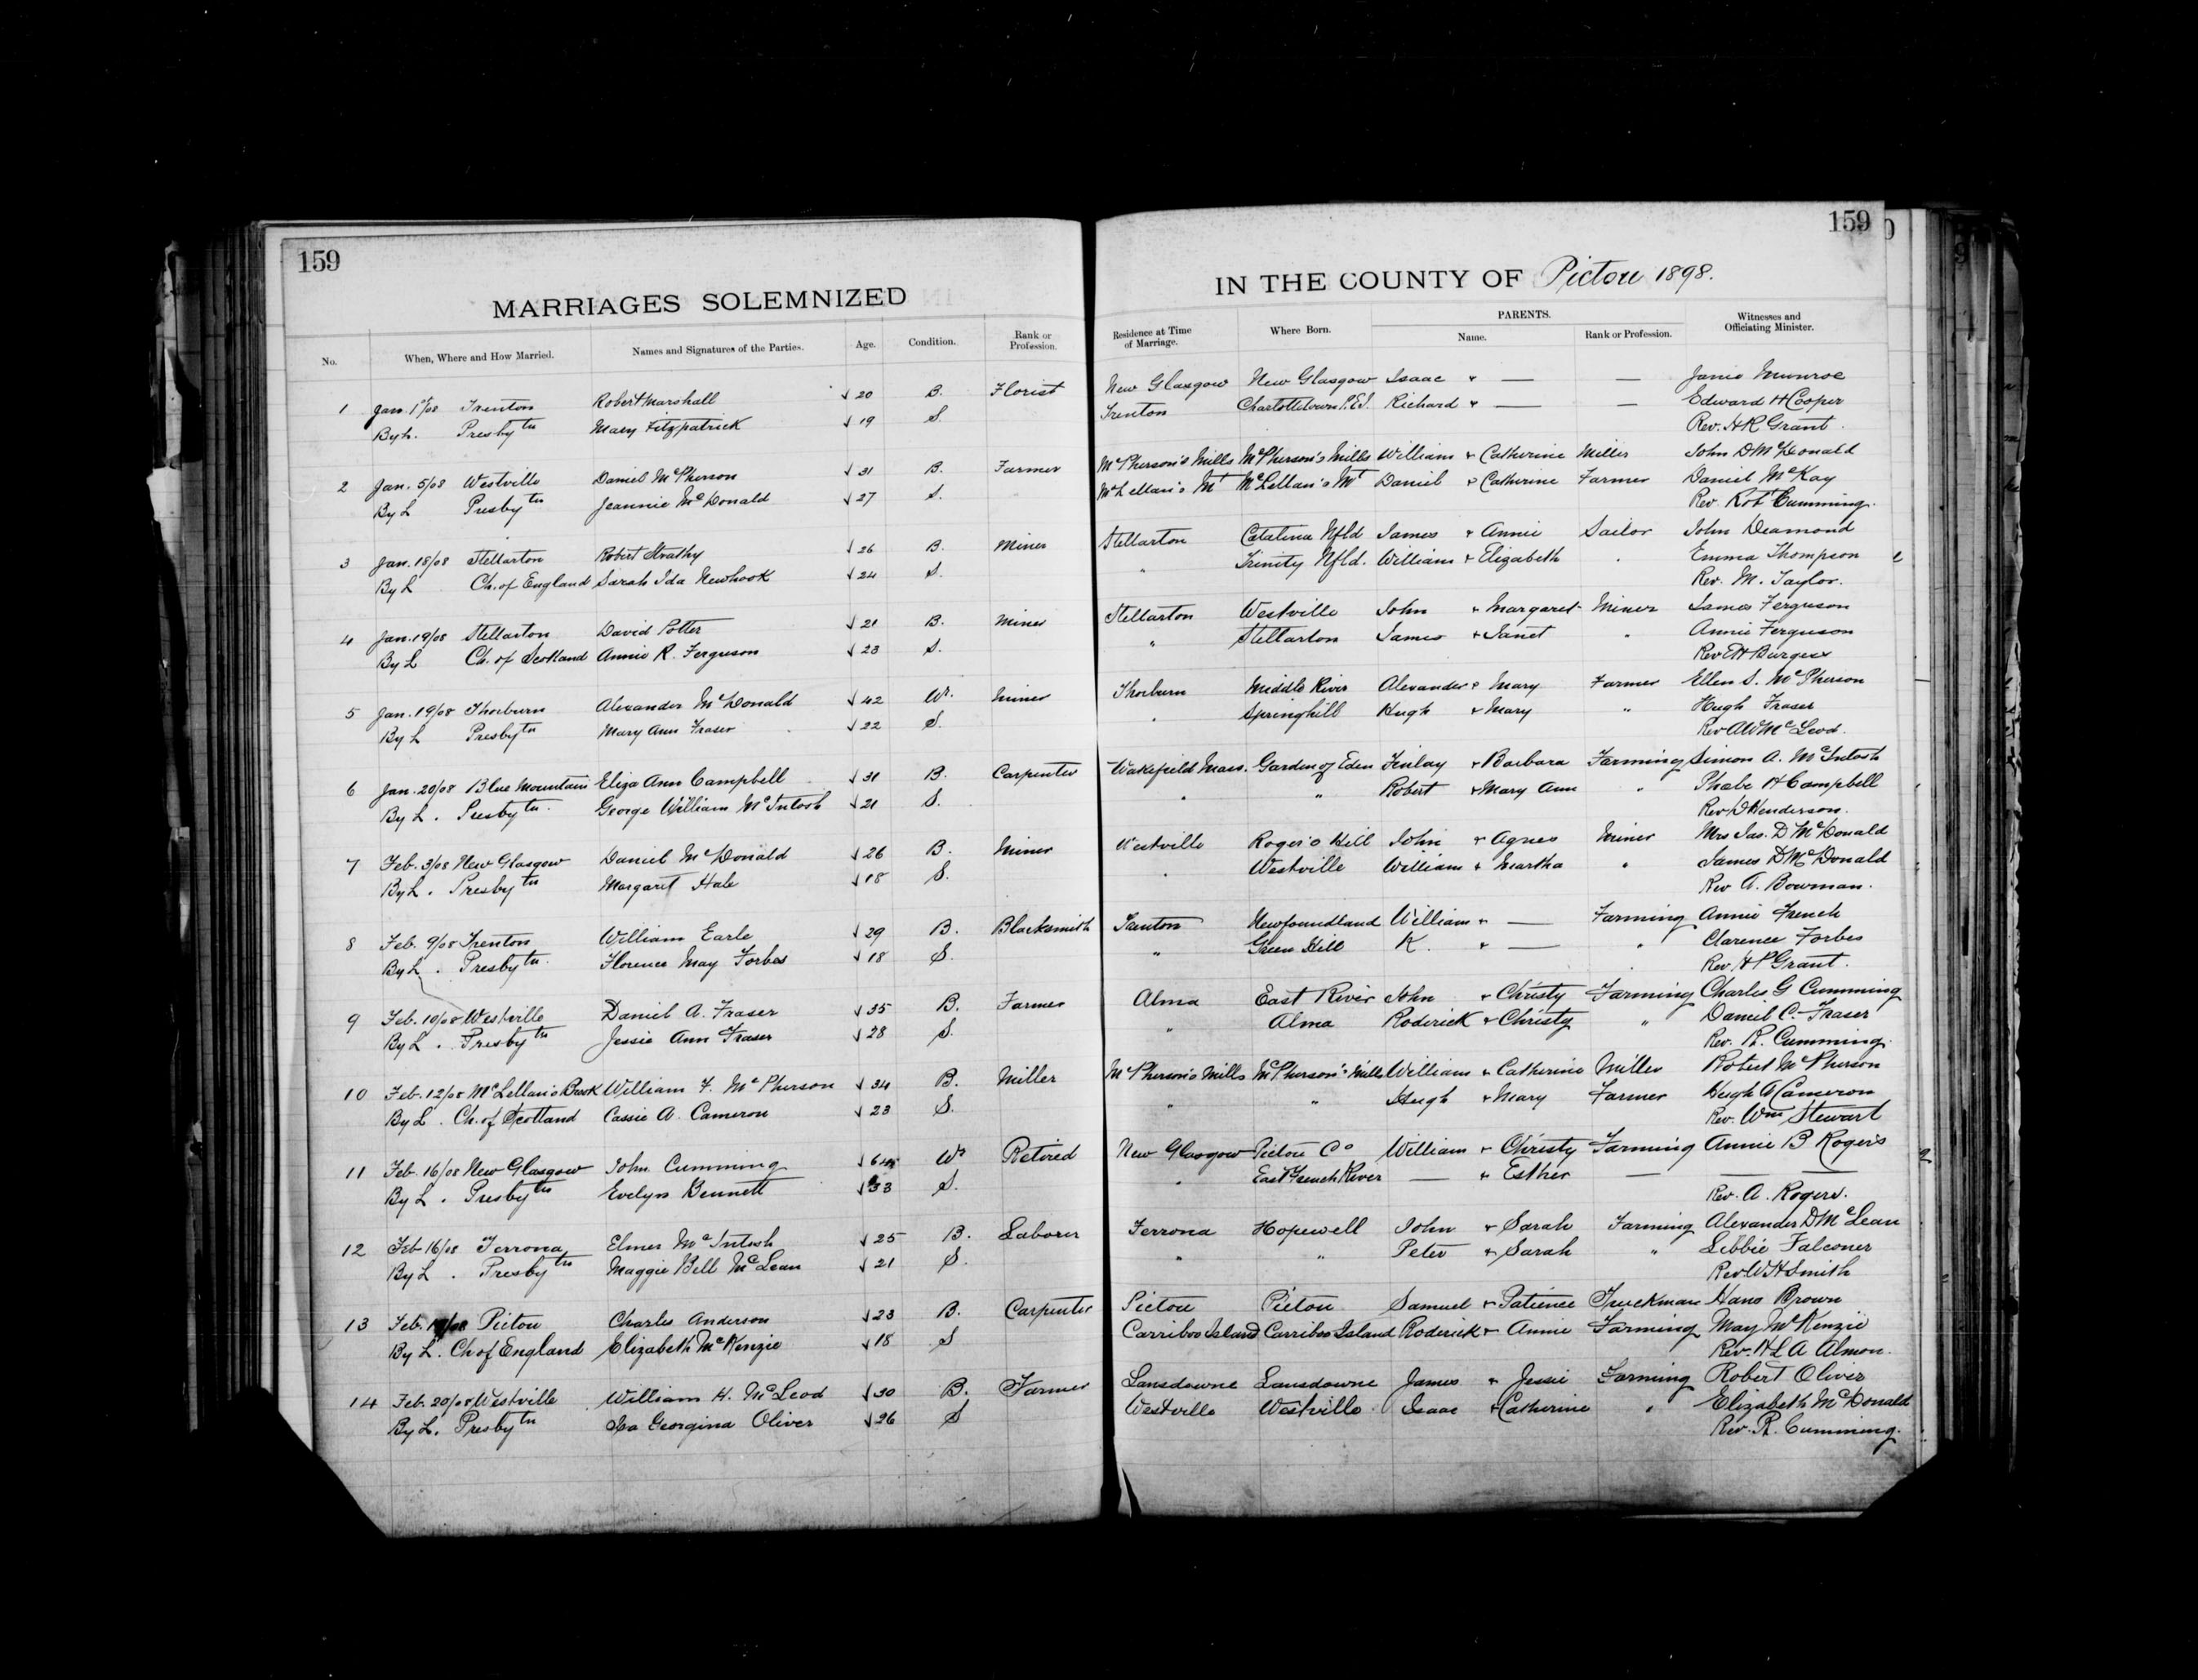 159
159
MARRIAGES SOLEMNIZED IN THE COUNTY OF Pictou 1898.
No. When, Where and How Married. Names and Signatures of the Parties. Age. Condition. Rank or Profession. Residence at Time of Marriage. Where Born. PARENTS. Name. Rank or Profession. Witnesses and Officiating Minister.
1 Jan. 1st/98 Trenton Robert Marshall √ 20 B. Florist New Glasgow New Glasgow Isaac + — — Janie Munroe
By L. Presbytn Mary Fitzpatrick √ 19 S. Trenton Charlottetown P.E.I. Richard + — — Edward H Cooper
Rev. H R Grant.
2 Jan. 5/98 Westville Daniel McPherson √ 31 B. Farmer McPherson's Mills McPherson's Mills William + Catherine Miller John D McDonald
By L Presbytn Jeannie McDonald √ 27 S. McLellan's Mt McLellan's Mt Daniel + Catherine Farmer Daniel McKay
Rev. Robt Cumming.
3 Jan. 18/98 Stellarton Robert Strathy √ 26 B. Miner Stellarton Catalina Nfld James + Annie Sailor John Deamond
By L Ch. of England Sarah Ida Newhook √ 24 S. " Trinity Nfld. William + Elizabeth " Emma Thompson
Rev. M. Taylor.
4 Jan. 19/98 Stellarton David Potter √ 21 B. Miner Stellarton Westville John + Margaret Miner James Ferguson
By L Ch. of Scotland Annie R. Ferguson √ 23 S. " Stellarton James + Janet " Annie Ferguson
Rev E H Burgess
5 Jan. 19/98 Thorburn Alexander McDonald √ 42 Wr. Miner Thorburn Middle River Alexander + Mary Farmer Ellen S. McPherson
By L Presbytn Mary Ann Fraser √ 22 S. " Springhill Hugh + Mary " Hugh Fraser
Rev A W McLeod.
6 Jan. 20/98 Blue Mountain Eliza Ann Campbell √ 31 B. Carpenter Wakefield Mass. Garden of Eden Finlay + Barbara Farming Simon A. McIntosh
By L. Presbytn. George William McIntosh √ 21 S. " " Robert + Mary Ann " Phebe H Campbell
Rev D Henderson.
7 Feb. 3/98 New Glasgow Daniel McDonald √ 26 B. Miner Westville Roger's Hill John + Agnes Miner Mrs Jas. D McDonald
By L. Presbytn Margaret Hale √ 18 S. " Westville William + Martha " James D McDonald
Rev A. Bowman.
8 Feb. 9/98 Trenton William Earle √ 29 B. Blacksmith Trenton Newfoundland William + — Farming Annie French
By L. Presbytn. Florence May Forbes √ 18 S. " Green Hill K. + — " Clarence Forbes
Rev. H R Grant.
9 Feb. 10/98 Westville Daniel A. Fraser √ 35 B. Farmer Alma East River John + Christy Farming Charles G Cumming
By L. Presbytn Jessie Ann Fraser √ 28 S. " Alma Roderick + Christy " Daniel C. Fraser
Rev. R. Cumming.
10 Feb. 12/98 McLellan's Brook William F. McPherson √ 34 B. Miller McPherson's Mills McPherson's Mills William + Catherine Miller Robert McPherson
By L. Ch. of Scotland Cassie A. Cameron √ 23 S. " " Hugh + Mary Farmer Hugh A Cameron
Rev. Wm Stewart
11 Feb. 16/98 New Glasgow John Cumming √ Wr Retired New Glasgow Pictou Co William + Christy Farming Annie B Rogers
By L. Presbytn Evelyn Bennett √ 33 S. " East French River — + Esther — —
Rev. A. Rogers.
12 Feb 16/98 Ferrona Elmer McIntosh √ 25 B. Laborer Ferrona Hopewell John + Sarah Farming Alexander D McLean
By L. Presbytn Maggie Bell McLean √ 21 S. " " Peter + Sarah " Libbie Falconer
Rev W H Smith
13 Feb. Pictou Charles Anderson √ 23 B. Carpenter Pictou Pictou Samuel + Patience Truckman Hans Brown
By L. Ch of England Elizabeth McKenzie √ 18 S Carriboo Island Carriboo Island Roderick + Annie Farming May McKenzie
Rev. H L A Almon.
14 Feb. 20/98 Westville William H. McLeod √ 30 B. Farmer Lansdowne Lansdowne James + Jessie Farming Robert Oliver
By L. Presbytn Isa Georgina Oliver √ 26 S Westville Westville Isaac + Catherine " Elizabeth McDonald
Rev. R. Cumming.